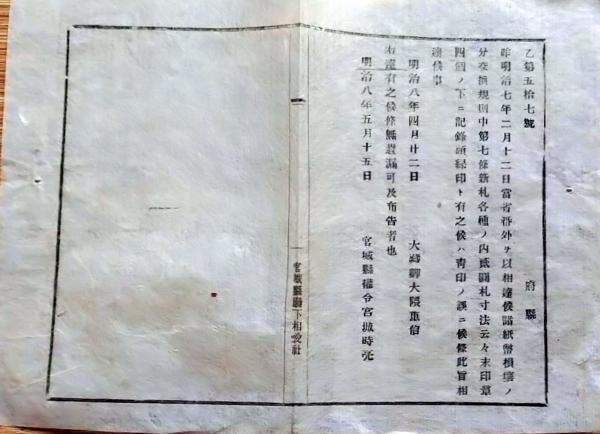 乙第五拾七號
府縣
昨明治七年二月十二日當省番外ヲ以相達候諸紙幣損壞ノ
分交換規則中第七條新札各種ノ內貳圓札寸法云々末印章
四個ノ下ニ記錄頭緑印ト有之候ハ靑印ノ誤ニ候條此旨相
達候事
明治八年四月廿二日 大藏卿大隈重信
右達有之候條無遺漏可及布告者也
明治八年五月十五日 宮城縣權令宮城時亮
宮城縣 下相愛社